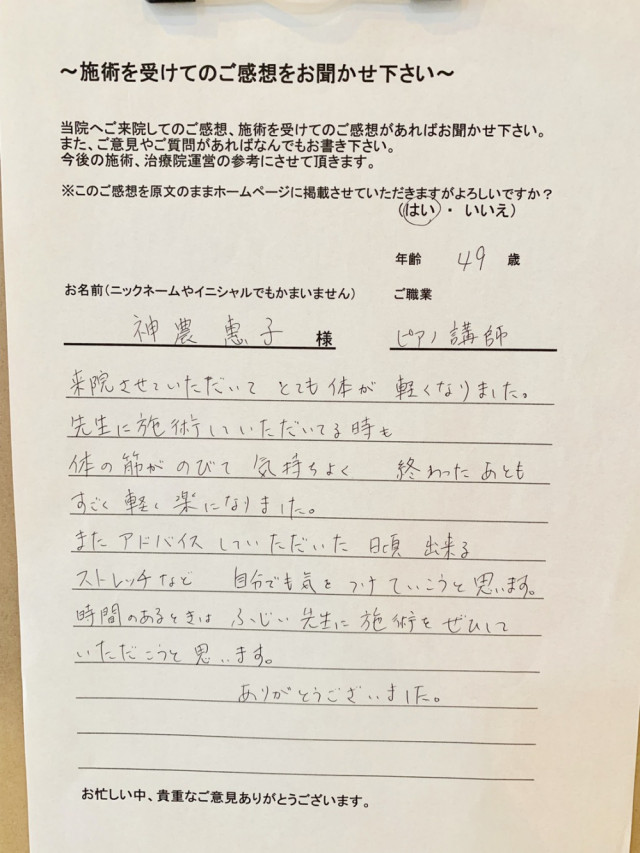 ～施術を受けてのご感想をお聞かせ下さい～
当院へご来院してのご感想、施術を受けてのご感想があればお聞かせ下さい。
また、ご意見やご質問があればなんでもお書き下さい。
今後の施術、治療院運営の参考にさせて頂きます。
※このご感想を原文のままホームページに掲載させていただきますがよろしいですか？
（はい ・ いいえ）
年齢 49 歳
お名前（ニックネームやイニシャルでもかまいません） ご職業
神農 恵子 様 ピアノ講師
来院させていただいて とても体が 軽くなりました。
先生に施術していただいてる時も
体の筋がのびて 気持ちよく 終わったあとも
すごく軽く楽になりました。
またアドバイスしていただいた 日頃 出来る
ストレッチなど 自分でも気をつけていこうと思います。
時間のあるときは ふじい先生に施術をぜひして
いただこうと思います。
ありがとうございました。
お忙しい中、貴重なご意見ありがとうございます。